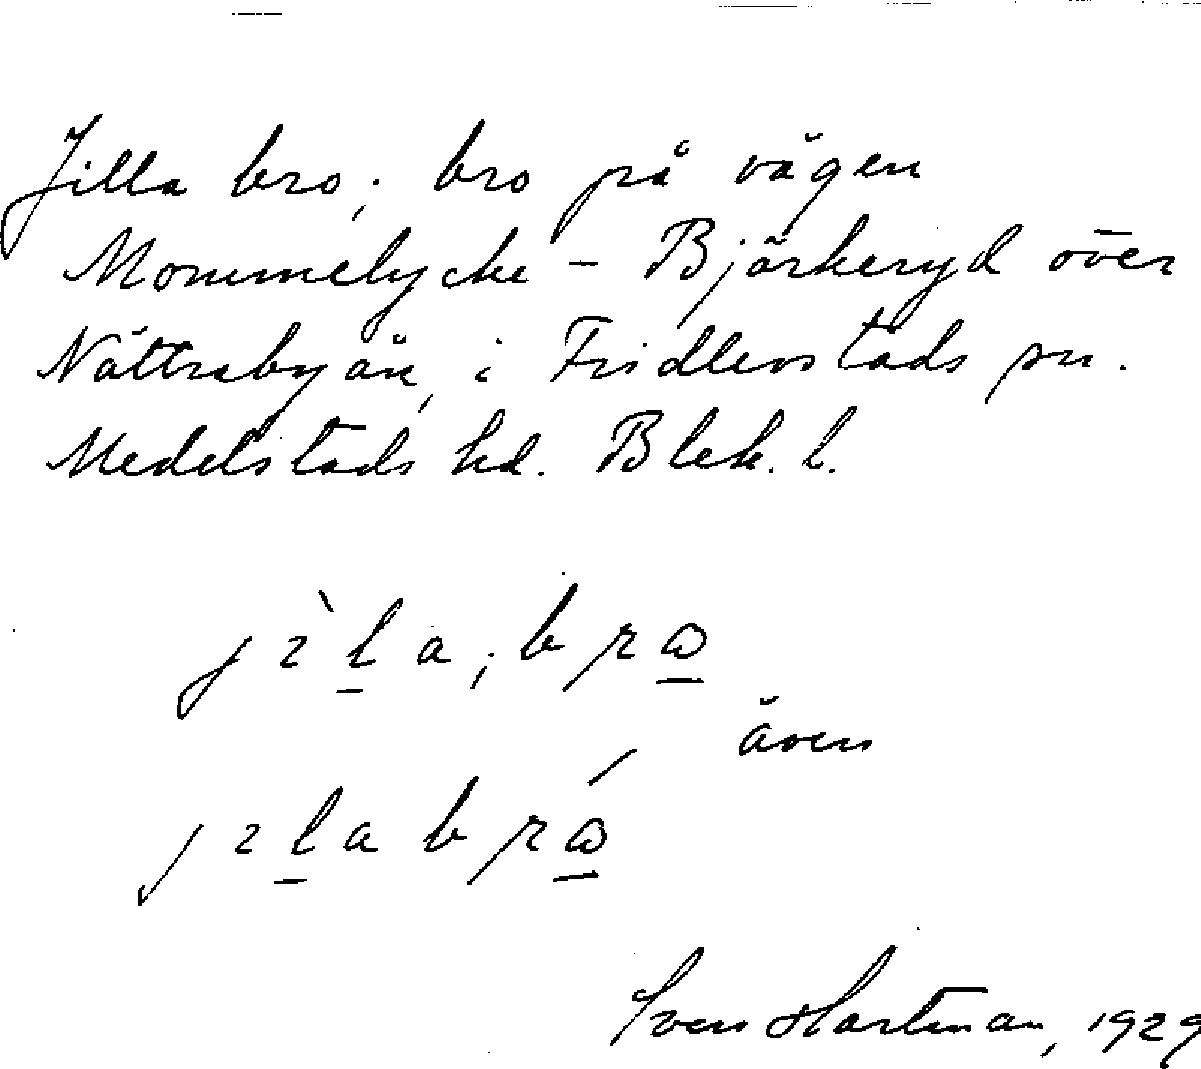 Jilla bro; bro på vägen
Mommelycke - Björkeryd över
Nättrabyån, i Fridlevstads sn.
Medelstads hd. Blek. l.
även
Sven Hartman, 1929